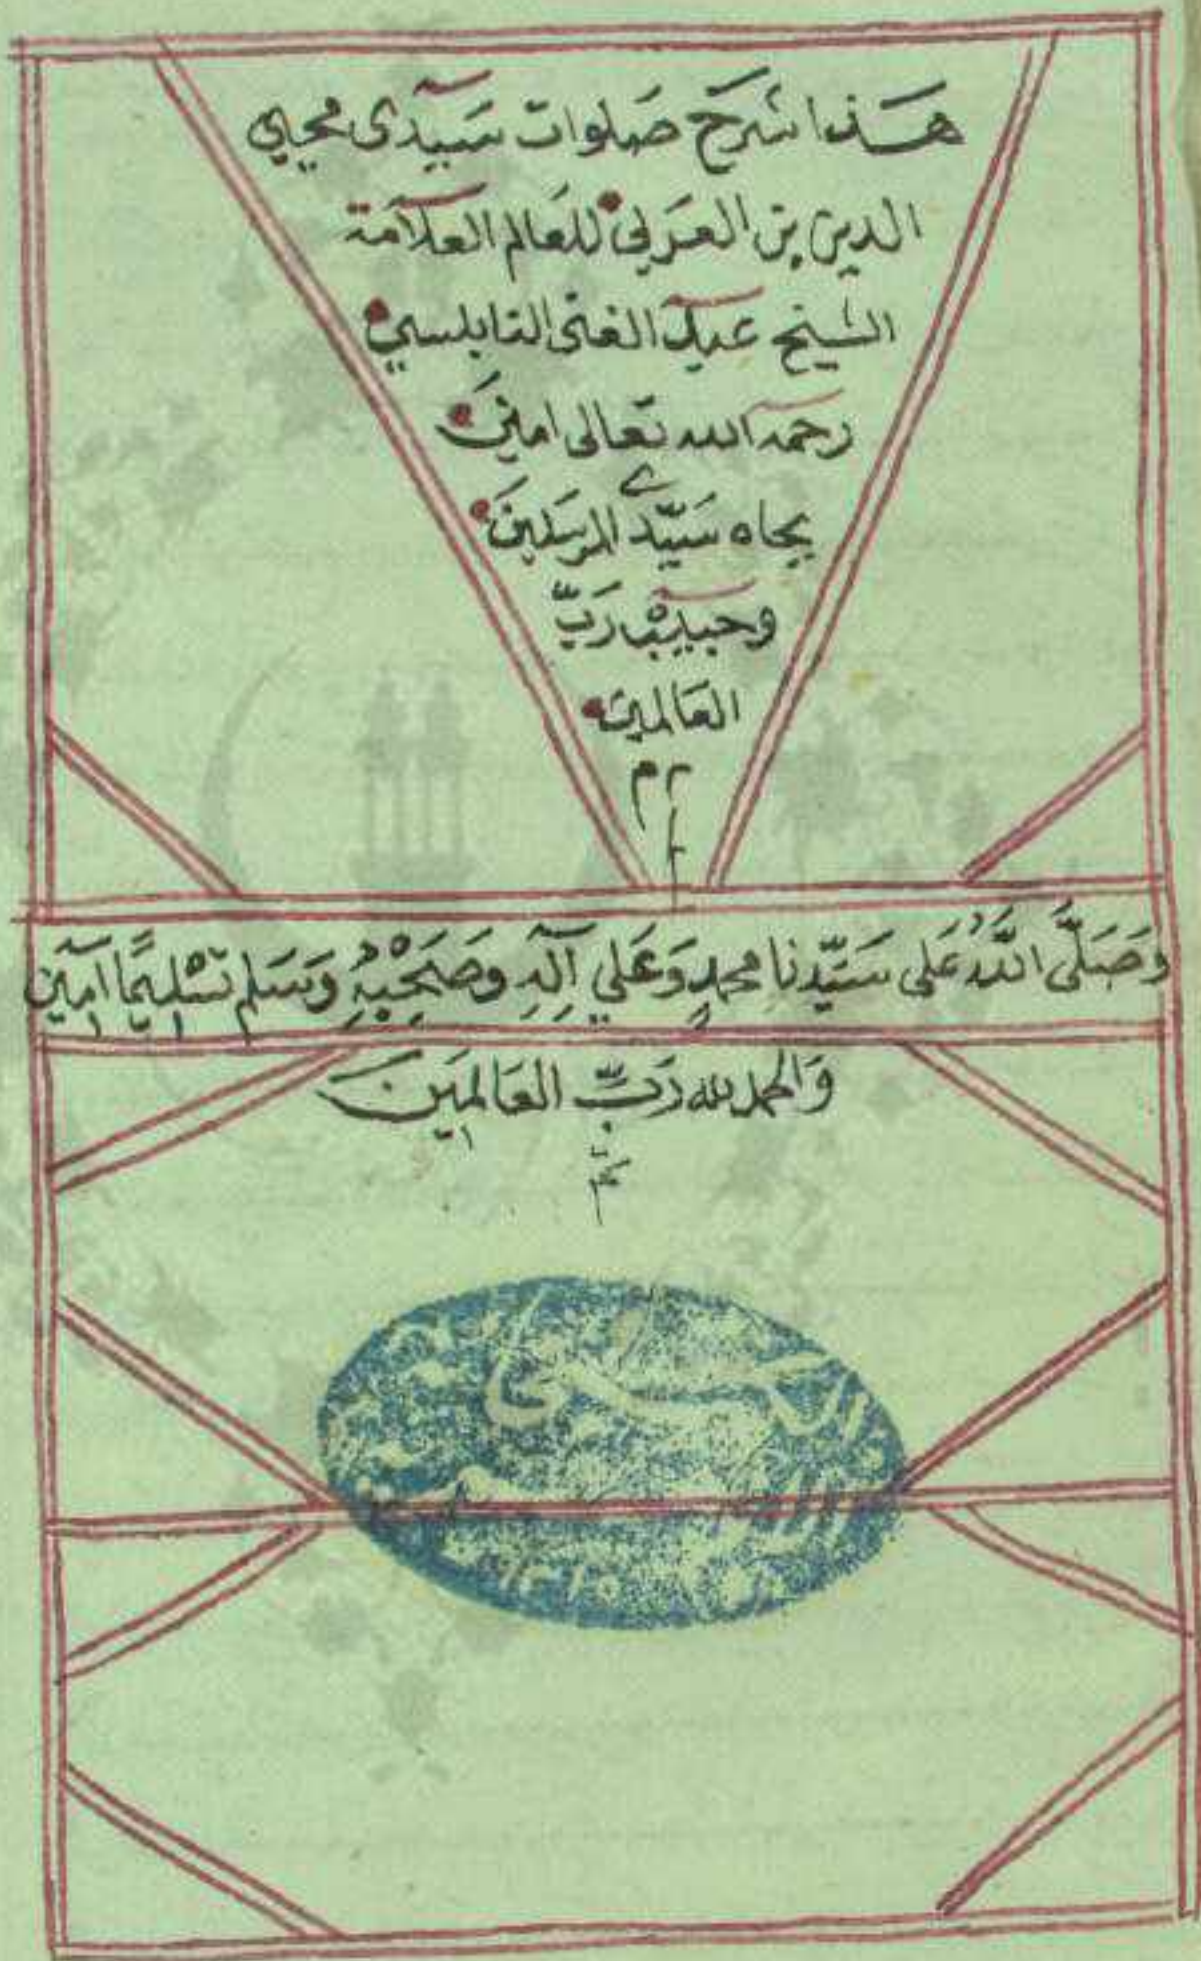 هذا شرح صلوات سيدى محيي
الدين بن العربي للعالم العلامة
الشيخ عبد الغنى النابلسي
رحمه الله تعالى امين
بجاه سيد المرسلين
وحبيب رب
العالمين
م م
وَصَلَّى اللَّهُ عَلى سَيِّدِنَا محمدٍ وَعَلي آلِهِ وصَحْبِهِ وَسَلم تَسْلِيمًا آمِين
وَالحمد لله رَبِّ العَالمِين
١٣١٥